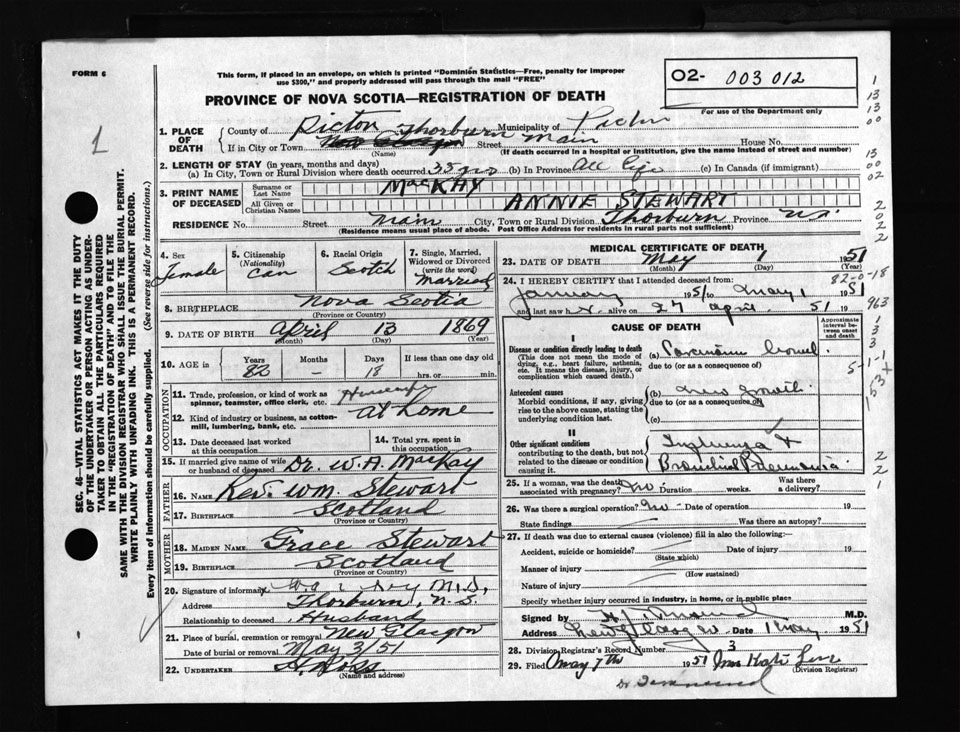 FORM 6
This form, if placed in an envelope, on which is printed "Dominion Statistics—Free, penalty for improper
use $300," and properly addressed will pass through the mail "FREE"
02- 003012
For use of the Department only
PROVINCE OF NOVA SCOTIA—REGISTRATION OF DEATH
1
1. PLACE OF DEATH
County of Pictou Municipality of Pictou
If in City or Town Thorburn Street Main House No.
(Name) (If death occurred in a hospital or institution, give the name instead of street and number)
2. LENGTH OF STAY (in years, months and days)
(a) In City, Town or Rural Division where death occurred 35 yrs (b) In Province All life (c) In Canada (if immigrant)
3. PRINT NAME OF DECEASED
Surname or Last Name MacKAY
All Given or Christian Names ANNIE STEWART
RESIDENCE No. Street Main City, Town or Rural Division Thorburn Province N.S.
(Residence means usual place of abode. Post Office Address for residents in rural parts not sufficient)
4. Sex Female
5. Citizenship (Nationality) Can
6. Racial Origin Scotch
7. Single, Married, Widowed or Divorced (write the word) Married
8. BIRTHPLACE Nova Scotia
(Province or Country)
9. DATE OF BIRTH April 13 1869
(Month) (Day) (Year)
10. AGE in Years 82 Months - Days 18 If less than one day old hrs. or min.
11. Trade, profession, or kind of work as spinner, teamster, office clerk, etc. Housewife
12. Kind of industry or business, as cotton-mill, lumbering, bank, etc. at home
13. Date deceased last worked at this occupation
14. Total yrs. spent in this occupation
15. If married give name of wife or husband of deceased Dr. W. A. MacKay
FATHER
16. NAME Rev. Wm. Stewart
17. BIRTHPLACE Scotland
(Province or Country)
MOTHER
18. MAIDEN NAME Grace Stewart
19. BIRTHPLACE Scotland
(Province or Country)
20. Signature of informant
Address Thorburn, N.S.
Relationship to deceased Husband
21. Place of burial, cremation or removal New Glasgow
Date of burial or removal May 3/51
22. UNDERTAKER
(Name and address)
MEDICAL CERTIFICATE OF DEATH
23. DATE OF DEATH May 1 1951
(Month) (Day) (Year)
82-0-18
24. I HEREBY CERTIFY that I attended deceased from:
January 1951 to May 1 1951
and last saw h alive on 27 April 51 19
CAUSE OF DEATH
Approximate interval between onset and death
I
Disease or condition directly leading to death
(This does not mean the mode of dying, e.g., heart failure, asthenia, etc. It means the disease, injury, or complication which caused death.)
(a) Carcinoma bowel
due to (or as a consequence of)
Antecedent causes
Morbid conditions, if any, giving rise to the above cause, stating the underlying condition last.
(b) new growth
due to (or as a consequence of)
(c)
II
Other significant conditions
contributing to the death, but not related to the disease or condition causing it.
Influenza & Bronchial Pneumonia
25. If a woman, was the death associated with pregnancy? no Duration weeks. Was there a delivery?
26. Was there a surgical operation? no Date of operation 19
State findings Was there an autopsy?
27. If death was due to external causes (violence) fill in also the following:—
Accident, suicide or homicide? Date of injury 19
(State which)
Manner of injury
(How sustained)
Nature of injury
Specify whether injury occurred in industry, in home, or in public place
Signed by M.D.
Address New Glasgow Date 1 May 1951
28. Division Registrar's Record Number 3
29. Filed May 7th 1951
(Division Registrar)
SEC. 46—VITAL STATISTICS ACT MAKES IT THE DUTY
OF THE UNDERTAKER OR PERSON ACTING AS UNDER-
TAKER TO OBTAIN ALL THE PARTICULARS REQUIRED
IN THE "REGISTRATION OF DEATH" AND TO FILE THE
SAME WITH THE DIVISION REGISTRAR WHO SHALL ISSUE THE BURIAL PERMIT.
WRITE PLAINLY WITH UNFADING INK. THIS IS A PERMANENT RECORD.
Every item of information should be carefully supplied. (See reverse side for instructions.)